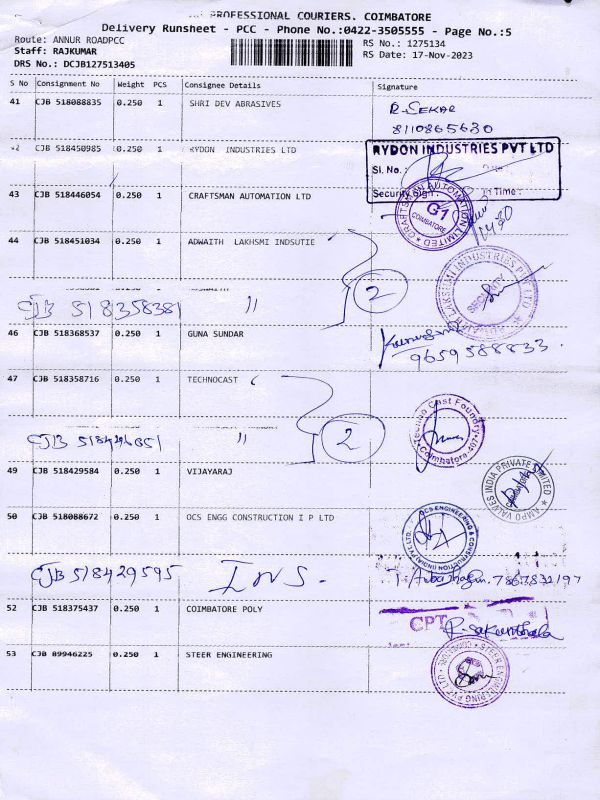 PROFESSIONAL COURIERS. COIMBATORE
Delivery Runsheet - PCC - Phone No.:0422-3505555 - Page No.:5
Route: ANNUR ROADPCC
RS No.: 1275134
Staff: RAJKUMAR
RS Date: 17-Nov-2023
DRS No.: DCJB127513405
S No Consignment No Weight PCS Consignee Details Signature
41 CJB 518088835 0.250 1 SHRI DEV ABRASIVES
R. SEKAR
8110865630
CJB 518450985 0.250 1 RYDON INDUSTRIES LTD
RYDON INDUSTRIES PVT LTD
Sl. No. :
Security Sign : In Time :
43 CJB 518446054 0.250 1 CRAFTSMAN AUTOMATION LTD
CRAFTSMAN AUTOMATION LIMITED
G1
COIMBATORE
44 CJB 518451034 0.250 1 ADWAITH LAKHSMI INDSUTIE
LAKSHMI INDUSTRIES PVT LTD
SECURITY
2
CJB 518358381 "
46 CJB 518368537 0.250 1 GUNA SUNDAR
9659588833.
47 CJB 518358716 1 0.250 TECHNOCAST
Techno Cast Foundry
Coimbatore
2
CJB 518426851 "
49 CJB 518429584 0.250 1 VIJAYARAJ
AMPO VALVES INDIA PRIVATE LIMITED
50 CJB 518088672 0.250 1 OCS ENGG CONSTRUCTION I P LTD
OCS ENGINEERING & CONSTRUCTION (INDIA) PVT LTD.
CJB 518429595 INS.
7867832197
52 CJB 518375437 0.250 1 COIMBATORE POLY
CPT
R. Sakunthala
53 CJB 89946225 0.250 1 STEER ENGINEERING
STEER ENGINEERING PVT LTD